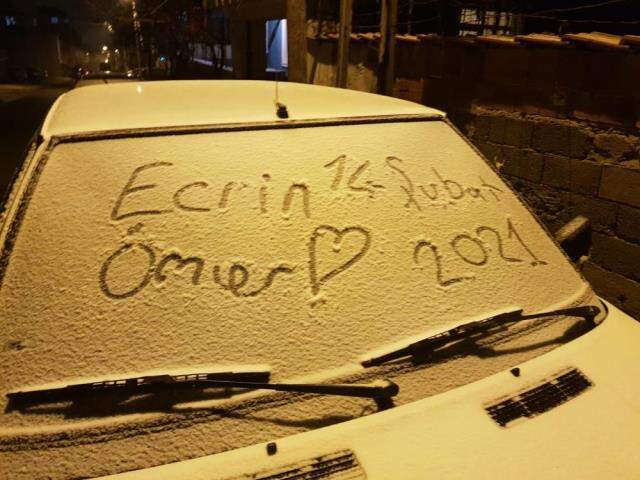 Ecrin 14 Şubat
Ömer♡ 2021